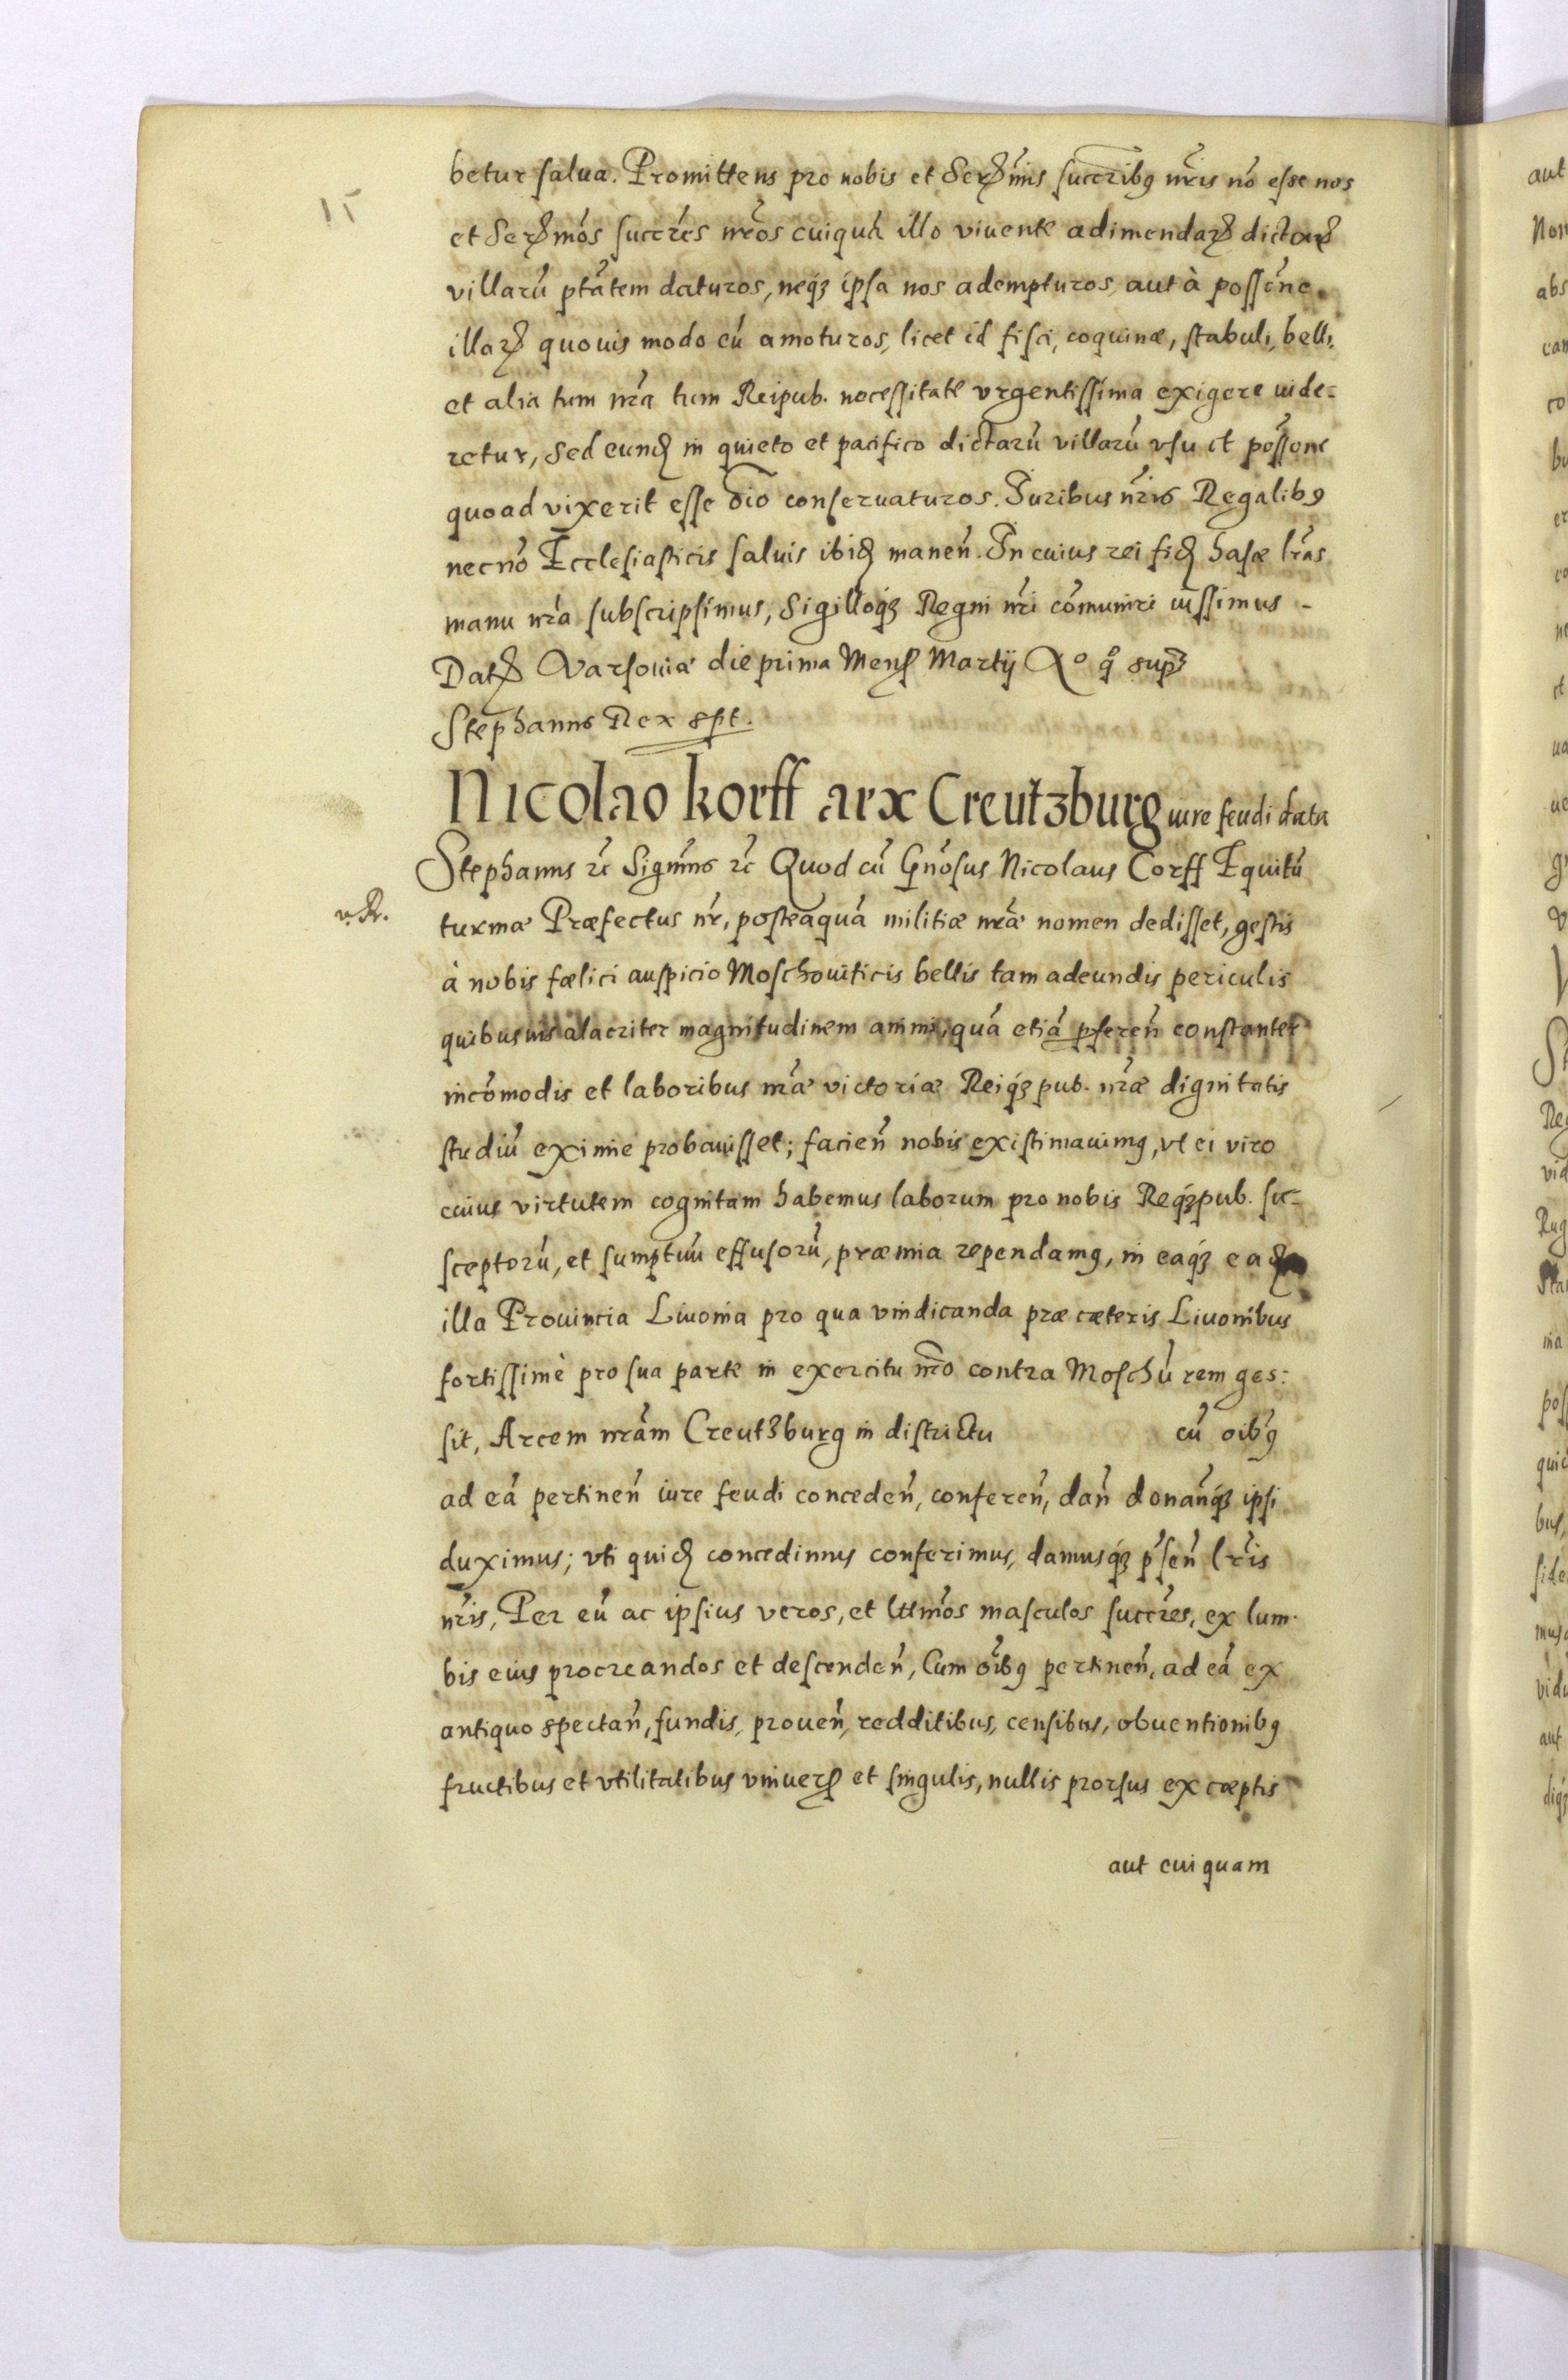 betur salua. Promittens pro nobis et Serꝫmis succribꝫ nris nõ esse nos
et Serꝫmos succres nros cuiquã illo viuente adimendarꝫ dictarꝫ
villarũ ptãtem daturos, neqꝫ ipsã nos adempturos, aut à possone
illarꝫ quouis modo eũ amoturos, licet id fisci, coquinæ, stabuli, belli,
et alia tum nrã tum Reipub. necessitate vrgentissima exigere uide-
retur, sed eundꝫ in quieto et pacifico dictarũ villarũ vsu et possone
quoad vixerit esse oio conseruaturos. Iuribus nris Regalibꝫ
necnõ Ecclesiasticis saluis ibidꝫ maneñ. In cuius rei fidꝫ hasce lrãs
manu nrã subscripsimus, Sigilloqꝫ Regni nri cõmuniri iussimus -
Datꝫ Varsouiæ die prima Mensꝫ Martij Aº qº supꝫ
Stephanus Rex spt.
Nicolao korff arx Creutzburg iure feudi data
Stephanus ꝛc Signꝫmus ꝛc Quod cũ Gñosus Nicolaus Corff Equitũ
turmæ Præfectus nr, posteaquã militiæ nræ nomen dedisset, gestis
à nobis fœlici auspicio Moschouiticis bellis tam adeundis periculis
quibusuis alacriter magnitudinem animi, quã etiã pfereñ constanter
incõmodis et laboribus nræ victoriæ Reiqꝫ pub. nræ dignitatis
studiũ eximie probauisset; facieñ nobis existimauimꝫ, vt ei viro
cuius virtutem cognitam habemus laborum pro nobis Reqꝫ pub. su-
sceptorũ, et sumptuũ effusorũ, præmia rependamꝫ, in eaqꝫ eadꝫ
illa Prouincia Liuonia pro qua vindicanda præ cæteris Liuonibus
fortissimè pro sua parte in exercitu nro contra Moschũ rem ges:
sit, Arcem nrãm Creutzburg in districtu cũ oibꝫ
ad eã pertineñ iure feudi concedeñ, confereñ, dañ donañqꝫ ipsi
duximus; vti quidꝫ concedimus conferimus, damusqꝫ pñseñ lris
nris, Per eũ ac ipsius veros, et lttmos masculos succres, ex lum-
bis eius procreandos et descendeñ, Cum oibꝫ pertineñ, ad eã ex
antiquo spectañ, fundis, proueñ, redditibus, censibus, obuentionibꝫ
fructibus et vtilitatibus vniuersꝫ et singulis, nullis prorsus exceptis
aut cuiquam